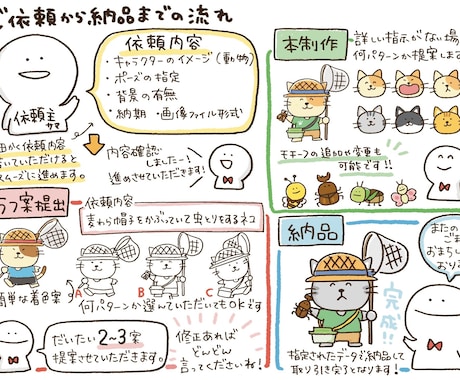 ご依頼から納品までの流れ
依頼内容
・キャラクターのイメージ(動物)
・ポーズの指定
・背景の有無
・納期・画像ファイル形式
依頼主
サマ
かく依頼
いていただけると
スムーズに進めます。
内容確認
しましたー!
進めさせていただきます!
ラフ案提出
依頼内容
麦わら帽子をかぶっていて虫とりをするネコ
A
B
C
簡単な着色案
何パターンか選んでいただいてもOKです
だいたい2~3案
提案させていただきます。
修正あれば
どんどん
言ってくださいね!
本制作
詳しい指示がない場
何パターンか提案しま
モチーフの追加や変更も
可能です!!
納品
またの
ご
おまちし
おり
完成!!
指定されたデータで納品して
取り引き完了となります!